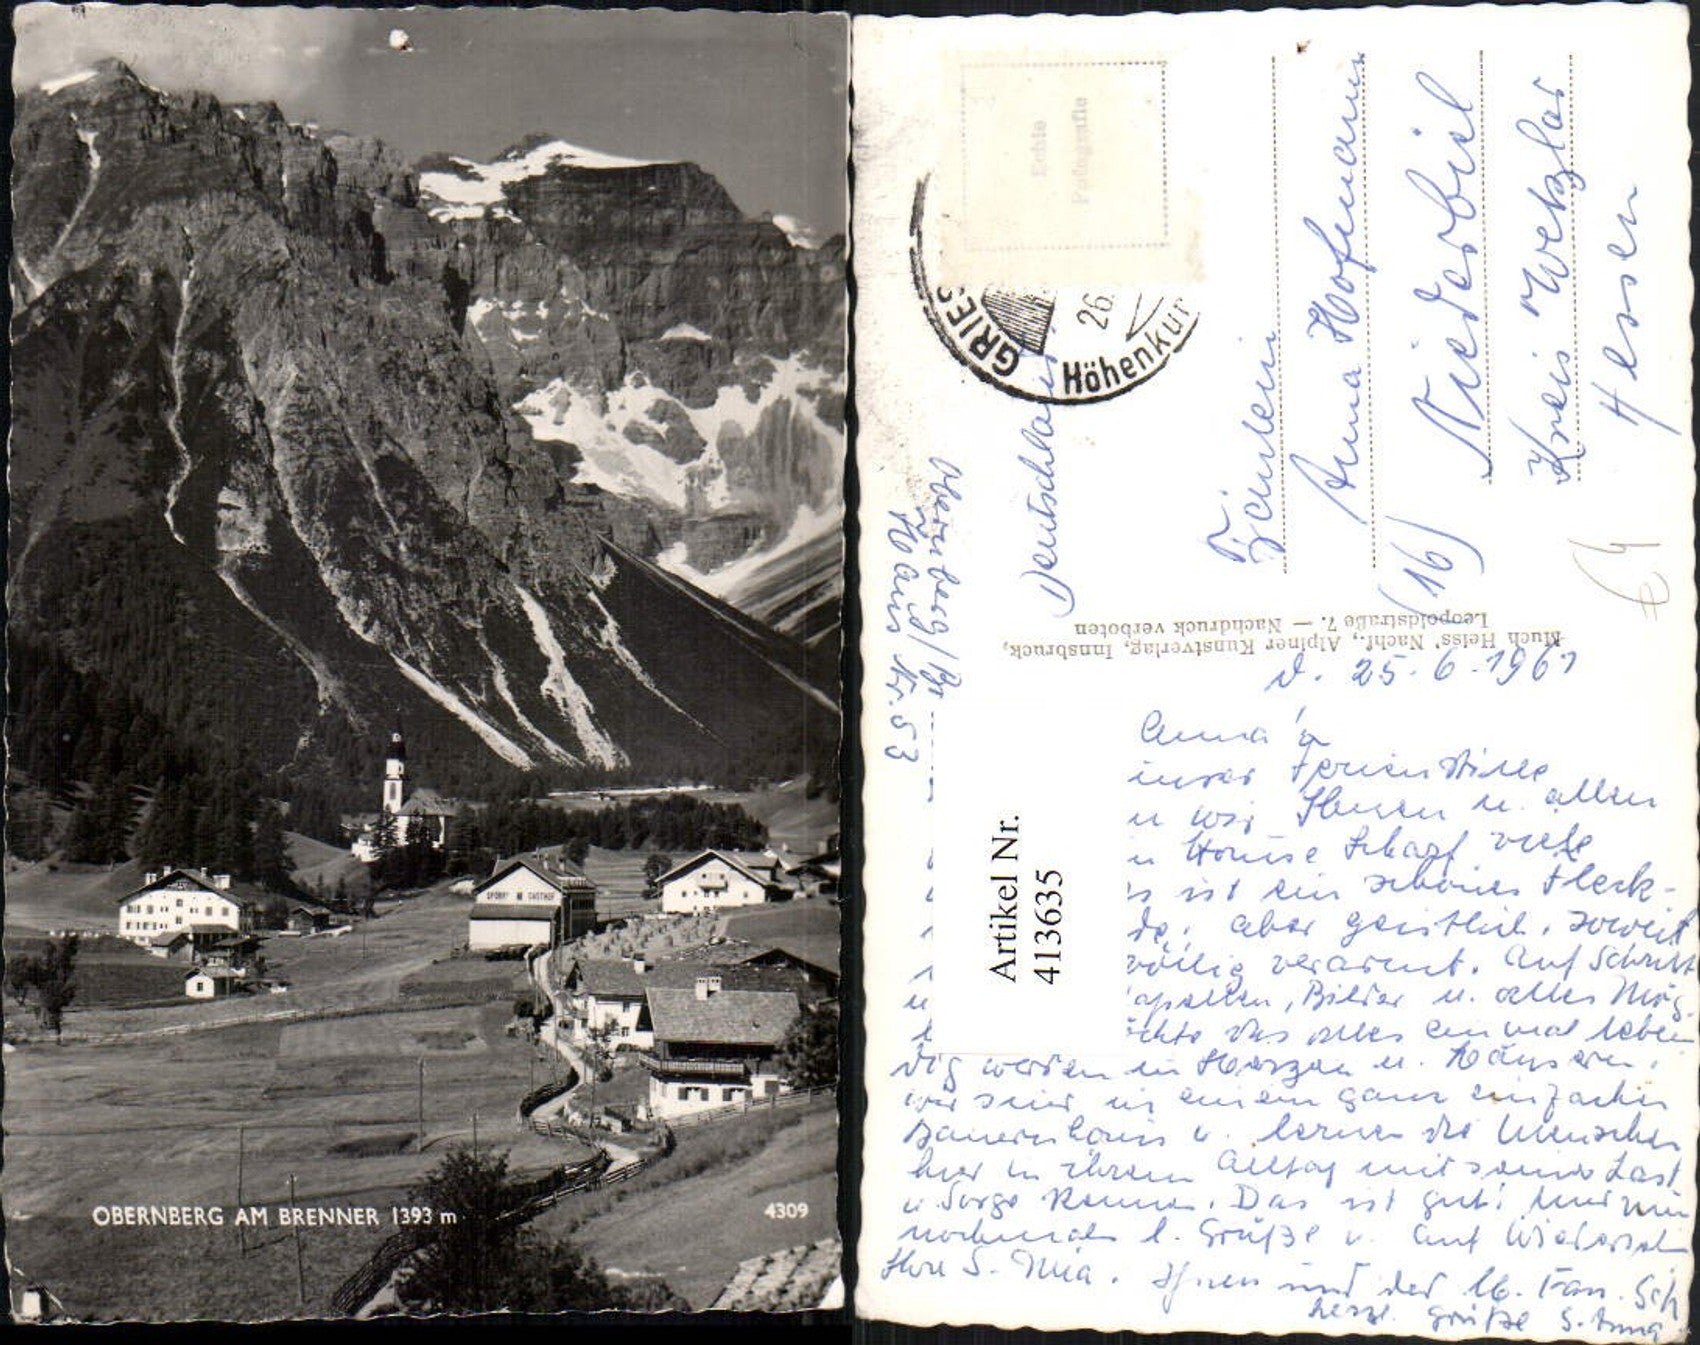 SPORT GASTHOF
OBERNBERG AM BRENNER 1393 m
4309
Echte
Fotografie
GRIES
26.
Höhenkur
Deutschland
Fräulein
Anna Hofmann
(16) Niederbiel
Kreis Wetzlar
Hessen
Much Heiss' Nachf., Alpiner Kunstverlag, Innsbruck,
Leopoldstraße 7. — Nachdruck verboten
Obernberg/Br
Haus Nr. 53
Artikel Nr.
413635
d. 25.6.1961
Anna
Ferienstille
wir Ihnen u. allen
Hause Scharf viele
s ist ein schönes Fleck-
aber geistlich, soweit
völlig verarmt. Auf Schritt
apellen, Bilder u. alles Mög-
chte das alles einmal leben
dig werden in Herzen u. Häusern.
wir sind in einem ganz einfachen
Bauernhaus u. lernen die Menschen
hier in ihrem Alltag mit seiner Last
u Sorge kennen. Das ist gut! Nun
nochmals l. Grüße u. Auf Wiedersehn
Ihre S. Mia. Ihnen und der lb. Fam. Sch
herzl. Grüße S. Anna